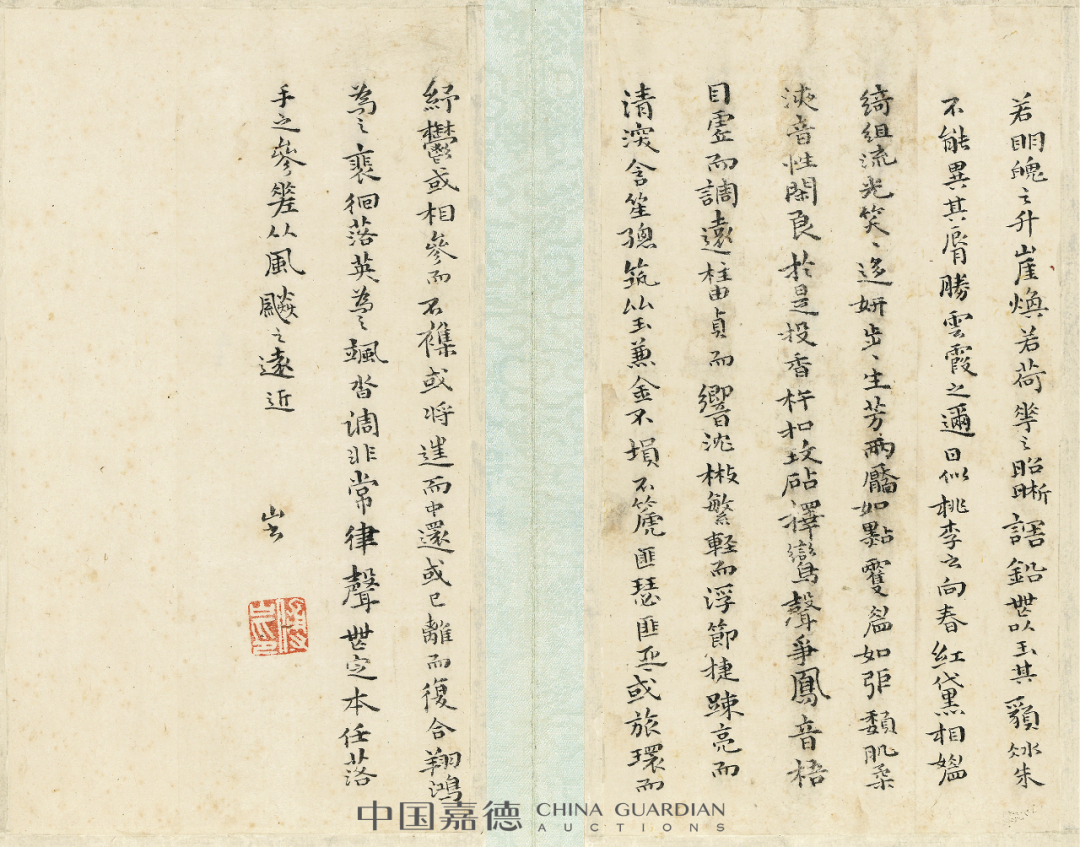 若明魄之升崖煥若荷華之昭晰調鉛無以玉其貌凝朱
不能異其脣勝雲霞之邇日似桃李之向春紅黛相媚
綺組流光笑〻迻妍步〻生芳兩靨如點雙眉如張頹肌柔
液音性閑良於是投香杵扣玟砧擇鸞聲爭鳳音梧
因虛而調遠柱由貞而響沈散繁輕而浮節捷踈亮而
清深含笙總筑比玉兼金不塤不篪匪瑟匪琴或旅環而
紓鬱或相參而不雜或將進而中還或已離而復合翔鴻
為之裴徊落英為之颯沓調非常律聲無定本任落
手之參差從風飈之遠近
山書
傅山印
中国嘉德 CHINA GUARDIAN
AUCTIONS